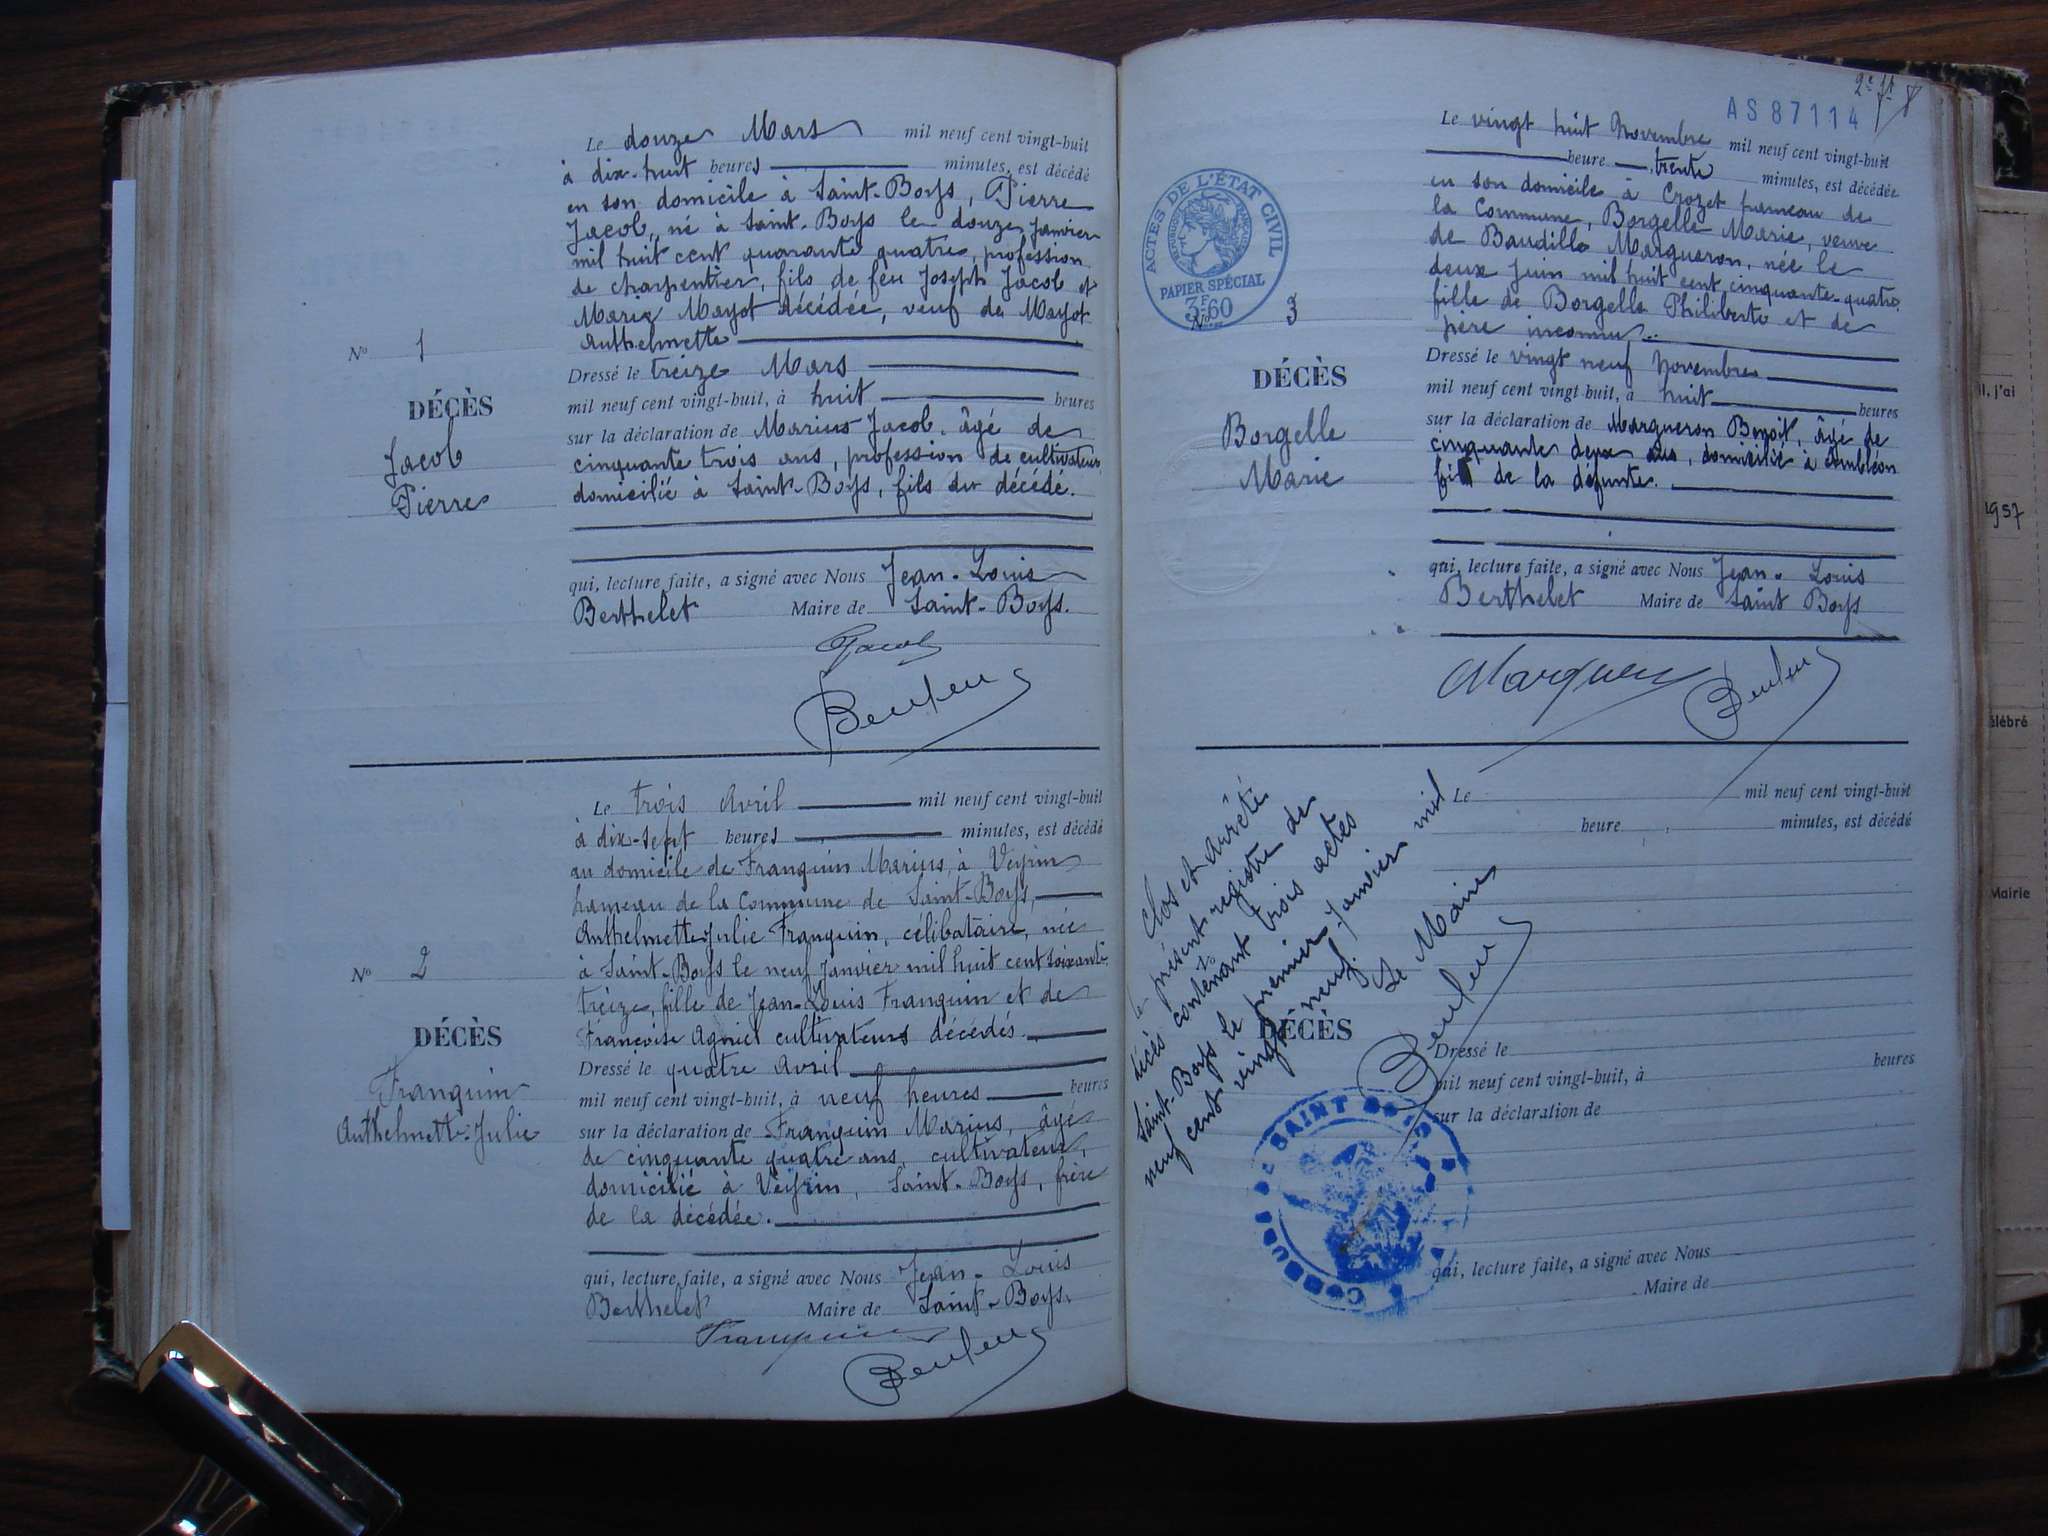 Le douze Mars mil neuf cent vingt-huit
à dix-huit heures minutes, est décédé
en son domicile à Saint-Boys, Pierre
Jacob, né à Saint-Boys le douze Janvier
mil huit cent quarante quatre, profession
de charpentier, fils de feu Joseph Jacob et
Marie Mayot décédée, veuf de Mayot
Anthelmette
Nº 1
DÉCÈS
Jacob
Pierre
Dressé le treize Mars
mil neuf cent vingt-huit, à huit heures
sur la déclaration de Marius Jacob, âgé de
cinquante trois ans, profession de cultivateur
domicilié à Saint-Boys, fils du décédé.
qui, lecture faite, a signé avec Nous Jean-Louis
Berthelet Maire de Saint-Boys.
Jacob
Le trois Avril mil neuf cent vingt-huit
à dix-sept heures minutes, est décédé
au domicile de Franquin Marius, à Veyrin
hameau de la Commune de Saint-Boys,
Anthelmette Julie Franquin, célibataire, née
à Saint-Boys le neuf Janvier mil huit cent soixante
treize, fille de Jean-Louis Franquin et de
Françoise Agniel cultivateurs décédés.
Nº 2
DÉCÈS
Franquin
Anthelmette-Julie
Dressé le quatre Avril
mil neuf cent vingt-huit, à neuf heures heures
sur la déclaration de Franquin Marius, âgé
de cinquante quatre ans, cultivateur,
domicilié à Veyrin, Saint-Boys, frère
de la décédée.
qui, lecture faite, a signé avec Nous Jean-Louis
Berthelet Maire de Saint-Boys.
Franquin
2e
AS 87114
8
ACTES DE L'ÉTAT CIVIL
PAPIER SPÉCIAL
3F60
Le vingt huit Novembre mil neuf cent vingt-huit
heure trente minutes, est décédée
en son domicile à Crozet hameau de
la Commune, Borgelle Marie, veuve
de Baudille Margueron, née le
deux Juin mil huit cent cinquante-quatre
fille de Borgelle Philiberte et de
père inconnu.
Nº 3
DÉCÈS
Borgelle
Marie
Dressé le vingt neuf Novembre
mil neuf cent vingt-huit, à huit heures
sur la déclaration de Margueron Benoit, âgé de
cinquante deux ans, domicilié à Ambléon
fils de la défunte.
qui, lecture faite, a signé avec Nous Jean-Louis
Berthelet Maire de Saint Boys
Le mil neuf cent vingt-huit
heure minutes, est décédé
DÉCÈS
Dressé le
mil neuf cent vingt-huit, à heures
sur la déclaration de
qui, lecture faite, a signé avec Nous
Maire de
Clos et arrêté
le présent registre de
décès contenant trois actes
Saint-Boys le premier Janvier mil
neuf cent vingt neuf.
Le Maire
SAINT BOIS
l, j'ai
1957
élébré
Mairie